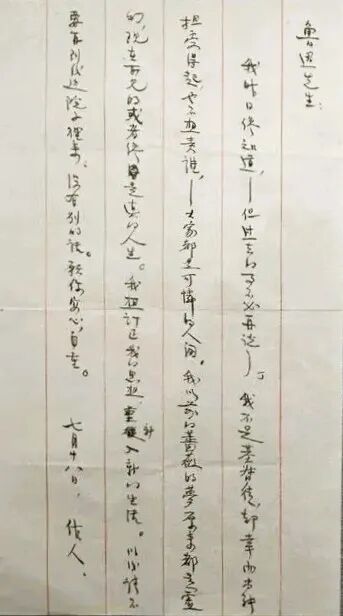 魯迅先生：
我昨日纔知道，——但过去的事不必再说了。我不是基督徒，却幸而尚能
担受得起，也不想責誰，——大家都是可憐的人间。我以前的薔薇的夢原来都是虚
幻，现在所見的或者纔是真的人生。我想訂正我的思想，重新入新的生活。以後請不
要再到後边院子裡来，没有别的話。願你安心，自重。
七月十八日，作人。